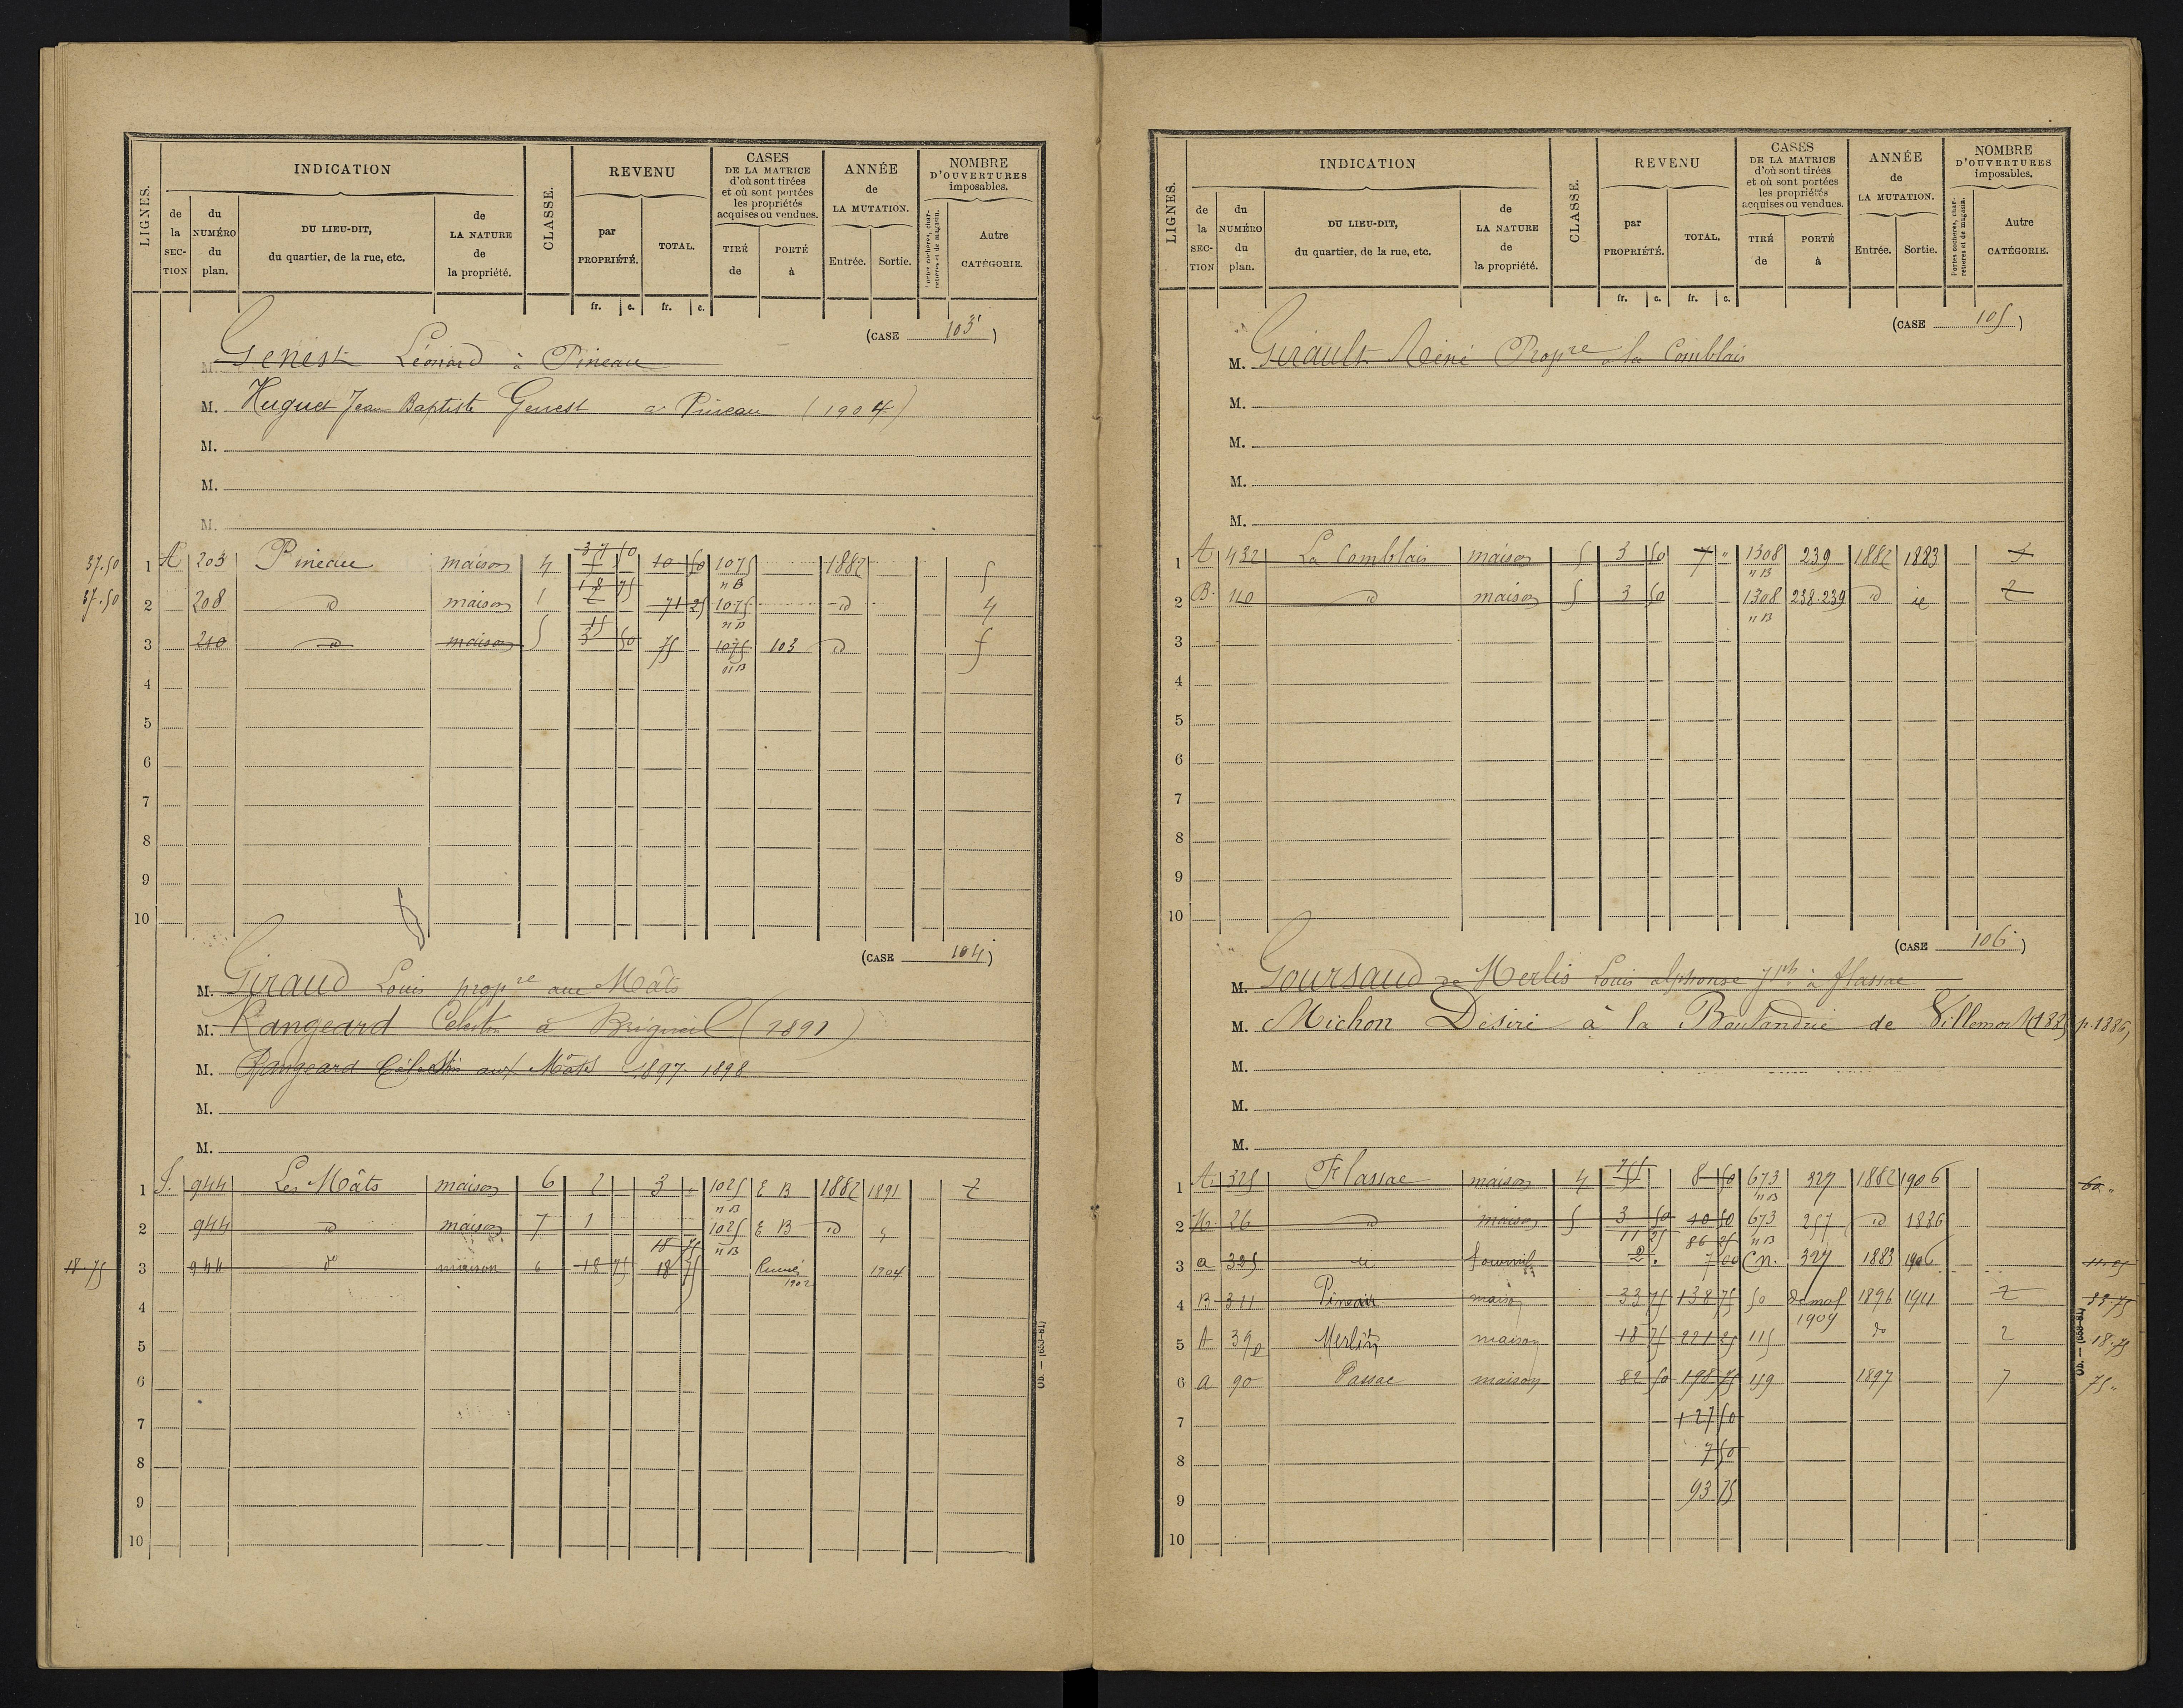 LIGNES.
INDICATION
de la SECTION
du NUMÉRO du plan.
DU LIEU-DIT, du quartier, de la rue, etc.
de LA NATURE de la propriété.
CLASSE.
REVENU
par PROPRIÉTÉ.
TOTAL.
fr. c. fr. c.
CASES DE LA MATRICE d'où sont tirées et où sont portées les propriétés acquises ou vendues.
TIRÉ de
PORTÉ à
ANNÉE de LA MUTATION.
Entrée. Sortie.
NOMBRE D'OUVERTURES imposables.
Portes cochères, charretières et de magasin.
Autre CATÉGORIE.
(CASE 103)
M. Genest Léonard à Pineau
M. Huguet Jean Baptiste Genest à Pineau (1904)
M.
M.
M.
37.50 1 A 203 Pineau maison 4 7 37 50 10 50 1075 "B 1882 5
37.50 2 208 id maison 1 18 75 71 25 1075 "B id 4
3 210 id maison 5 3 50 75 1075 "B 103 id 5
4
5
6
7
8
9
10
(CASE 104)
M. Giraud Louis propre aux Mâts
M. Rangeard Celestin à Brigueil (1891)
M. Rangeard Célestin aux Mâts 1897-1898
M.
M.
1 S. 944 Les Mâts maison 6 2 3 " 1025 "B E B 1882 1891 2
2 944 id maison 7 1 1025 "B E B id
18.75 3 944 do maison 6 18 75 18 75 1902 1904
4
5
6
7
8
9
10
LIGNES.
INDICATION
de la SECTION
du NUMÉRO du plan.
DU LIEU-DIT, du quartier, de la rue, etc.
de LA NATURE de la propriété.
CLASSE.
REVENU
par PROPRIÉTÉ.
TOTAL.
fr. c. fr. c.
CASES DE LA MATRICE d'où sont tirées et où sont portées les propriétés acquises ou vendues.
TIRÉ de
PORTÉ à
ANNÉE de LA MUTATION.
Entrée. Sortie.
NOMBRE D'OUVERTURES imposables.
Portes cochères, charretières et de magasin.
Autre CATÉGORIE.
(CASE 105)
M. Girault Réné Propre à la Comblais
M.
M.
M.
M.
1 A 432 La Comblais maison 5 3 50 7 " 1308 "B 239 1882 1883
2 B. 40 id maison 5 3 50 1308 "B 238-239 id id 2
3
4
5
6
7
8
9
10
(CASE 106)
M. Goursaud de Merlis Louis alphonse Jph à flassac
M. Michon Désiré à la Boulandrie de Villemort (1885 p. 1886)
M.
M.
M.
1 A. 325 Flassac maison 4 75 8 50 673 "B 327 1882 1906 60 "
2 26 id maison 5 3 50 10 50 673 "B 257 id 1886
3 a 325 id fournil 11 25 2 86 25 7 00 C n. 327 1883 1906
4 B 311 Pineau maison 33 75 138 75 50 1909 1896 1911 2 33.75
5 A 39p Merlin maison 18 75 221 25 115 do 2 18.75
6 a 90 Passac maison 82 50 198 75 119 1897 7 75 "
7 127 50
8 7 50
9 93 75
10